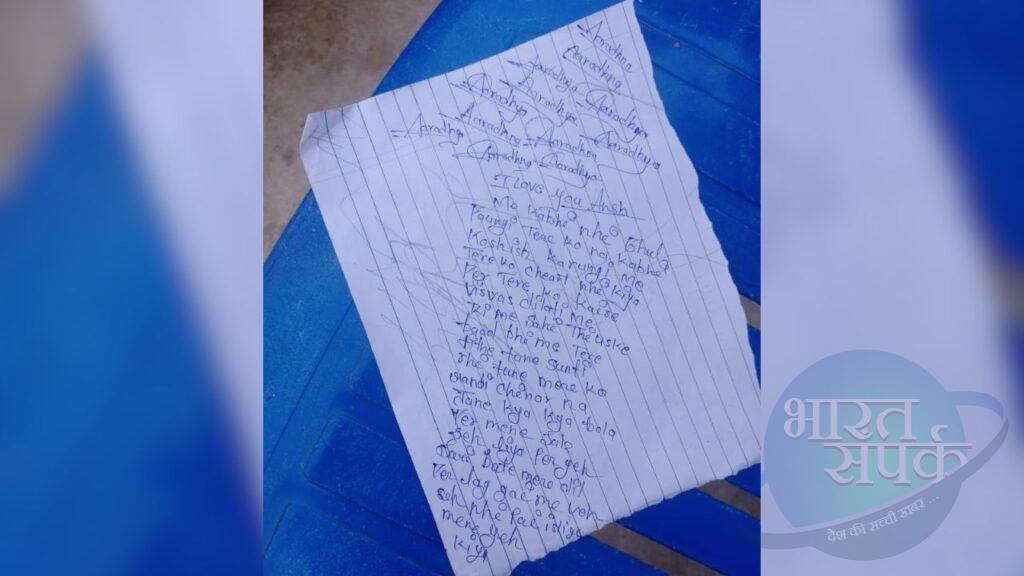 Aaradhya
Aaradhya
Aaradhya Aaradhya
Aaradhya Aaradhya
Aaradhya Aaradhya Aaradhya Aaradhya
Aaradhya Aaradhya
I Love you Ansh
Me kabhi nhe bhula
Paungi Tere ko na kabhi
Koshish karungi me
Tere ko cheart nhe kiya
Per Tere ko kaise
Visvas dilati me
Ki me sahi The uske
baad bhi me Tere
tane sunti
rhi tune mere ko
randi chenar na
Jane kya kya bola
Per meine bola
Seh liya Per yeh
Bate mere dil
Per lag gai me woh
seh nhe Pai isliye
meine yeh
kiya
भारत
संपर्क
देश की सच्ची खबर ...